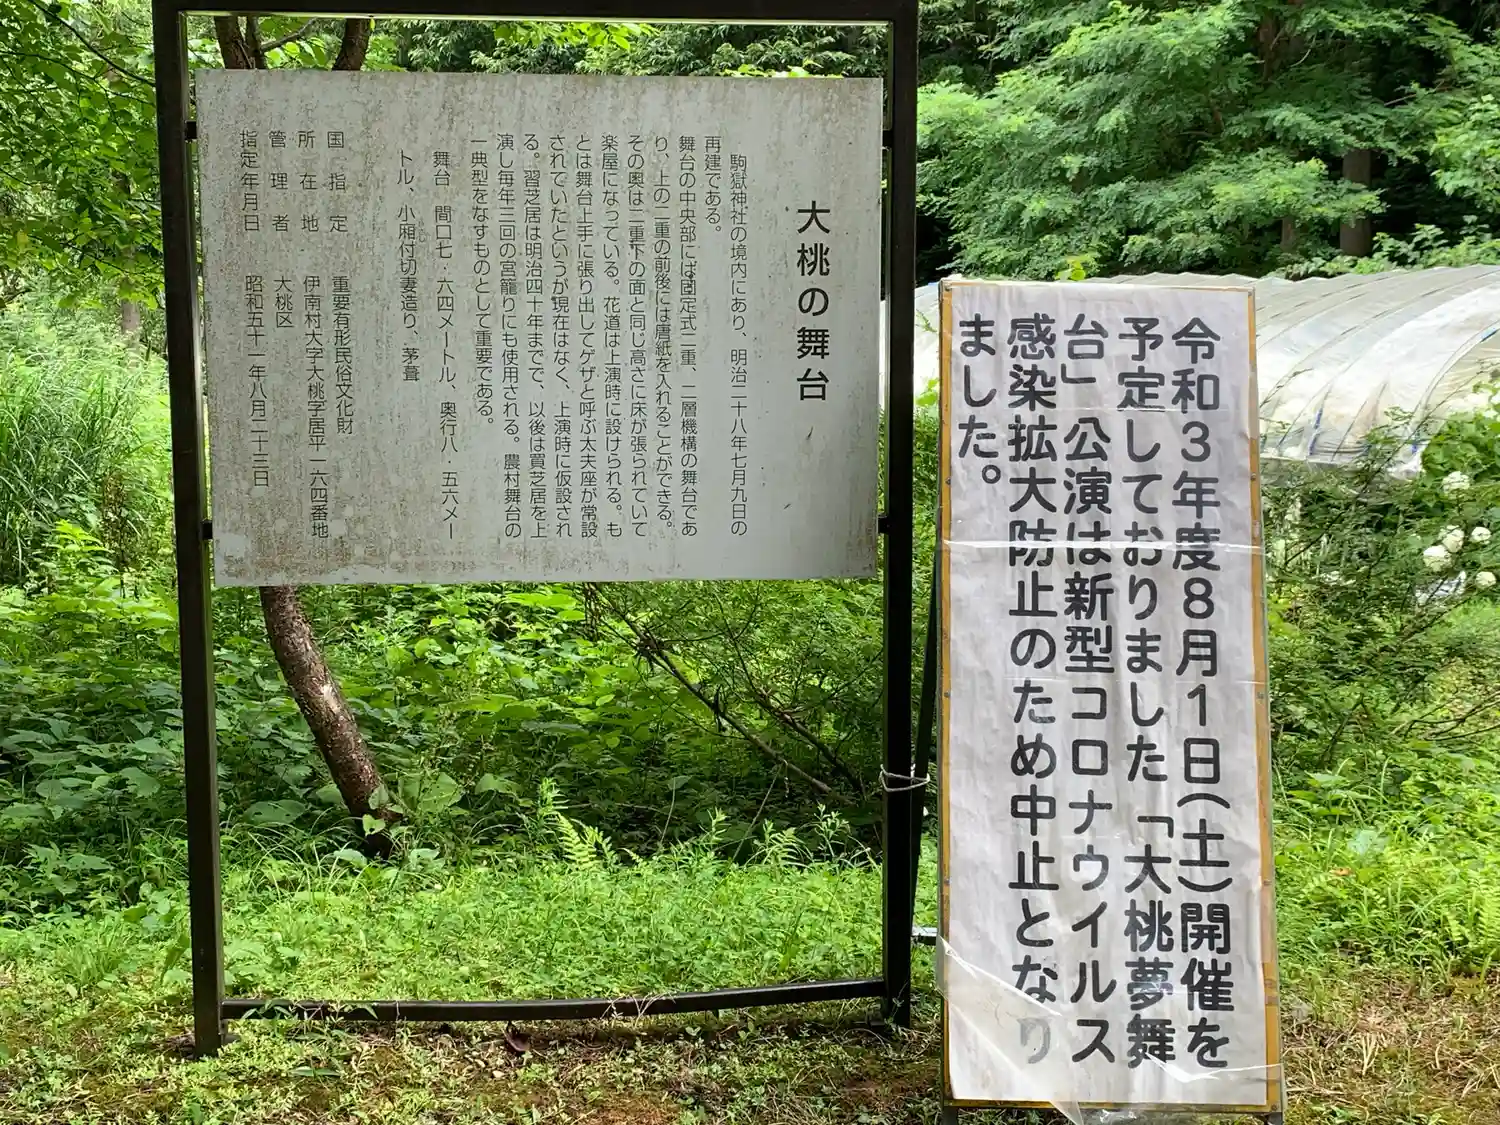 大桃の舞台
駒獄神社の境内にあり、明治二十八年七月九日の
再建である。
舞台の中央部には固定式二重、二層機構の舞台であ
り、上の二重の前後には唐紙を入れることができる。
その奥は二重下の面と同じ高さに床が張られていて
楽屋になっている。花道は上演時に設けられる。も
とは舞台上手に張り出してゲザと呼ぶ太夫座が常設
されていたというが現在はなく、上演時に仮設され
る。習芝居は明治四十年までで、以後は買芝居を上
演し毎年三回の宮籠りにも使用される。農村舞台の
一典型をなすものとして重要である。
舞台 間口七・六四メートル、奥行八・五六メー
トル、小廂付切妻造り、茅葺
国指定 重要有形民俗文化財
所在地 伊南村大字大桃字居平一六四番地
管理者 大桃区
指定年月日 昭和五十一年八月二十三日
令和３年度８月１日（土）開催を
予定しておりました「大桃夢舞
台」公演は新型コロナウイルス
感染拡大防止のため中止となり
ました。